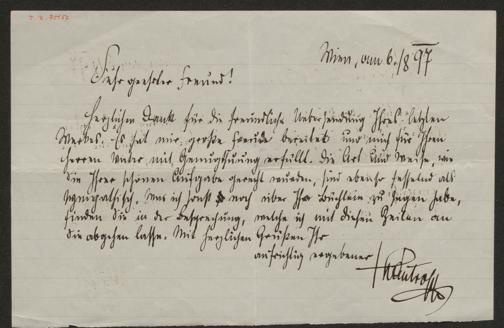 Wien, am 6./8 97
Sehr geehrter Freund!
Herzlichen Dank für die freundliche Uebersendung Ihres letzten
Werkes. Es hat mir große Freude bereitet und mich für Ihren
Herrn Vater mit Genugthuung erfüllt. Die Art und Weise, wie
Sie Ihrer schönen Aufgabe gerecht wurden, sind ebenso fesselnd als
sympathisch. Was ich sonst noch über Ihr Büchlein zu sagen habe,
finden Sie in der Besprechung, welche ich mit diesen Zeilen an
Sie abgehen lasse. Mit herzlichen Grüßen Ihr
aufrichtig ergebener